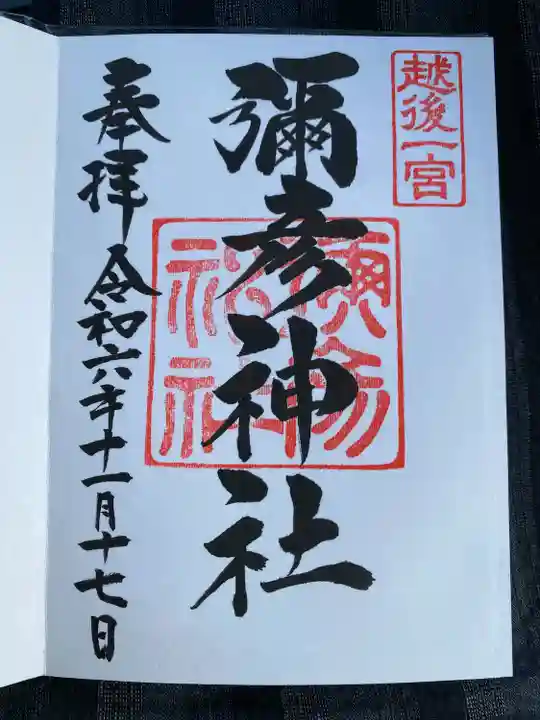 越後一宮
彌彦神社
奉拝
令和六年十一月十七日